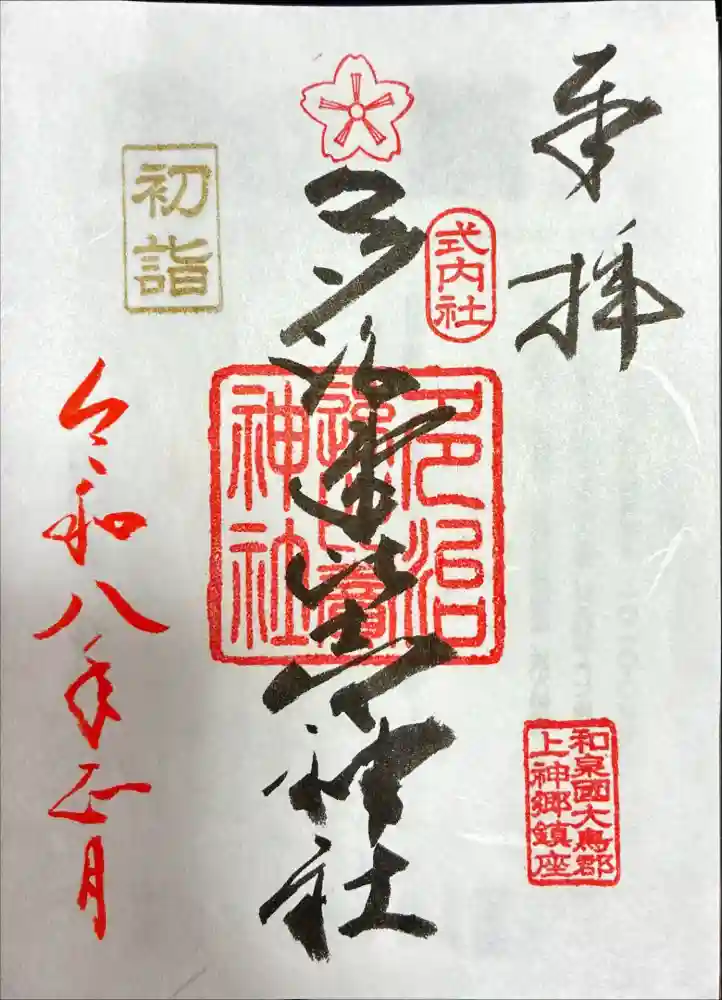 奉拝
式内社
多治速比売神社
多治
速比賣
神社
和泉國大鳥郡
上神郷鎮座
初詣
令和八年正月